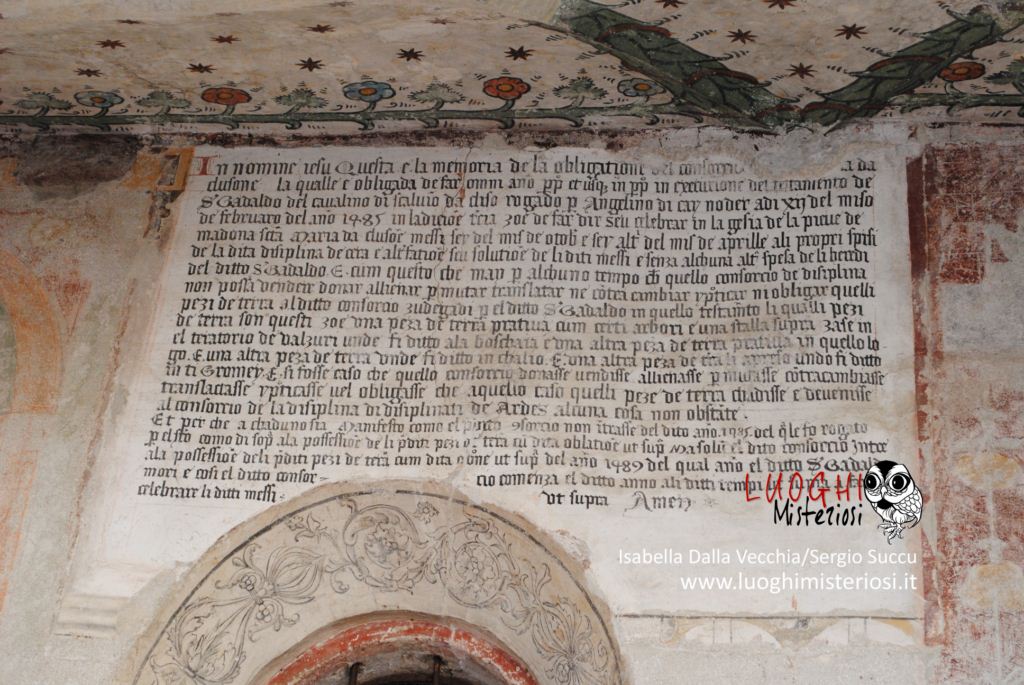 In nomine iesu Questa e la memoria de la obligatione del consorci a da
clusone la qualle e obligada de far omni ano pp et usq in pp in executione del testamento de
S Gadaldo del cavalino de scalvio da cliso rogado p Angelino di car noder adi XII del miso
de februaro del ano 1485 in ladicioe tcia zoe de far dir seu celebrar in la gesia de la pieve de
madona scta Maria da clusoe messi ser del mis de otob e ser alt del mis de aprille ali propri spesi
de la dita disiplina de cera e alefatioe seu solutioe de li diti messi e senza alchuna alt spesa de li heredi
del ditto S Gadaldo E cum questo che may p alchuno tempo ch quello consorcio de disiplina
non possa vendere donar allienar p mutar translatar ne cotra cambiar ypticar ni obligar quelli
pezi de terra al ditto consorcio zudegadi p el ditto S Gadaldo in quello testamto li qualli pezi
de terra son questi zoe una peza de terra prativa cum certi arbori e una stalla supra zase in
el teriatorio de valzuri unde fi ditto ala boschara e una altra peza de terra prativa in quello lo
go. E una altra peza de terra unde fi ditto in chilio. E una altra peza de tera li apreso undo fi ditto
in ti Gromey E si fosse caso che quello consorcio donasse vendisse allienasse p mutasse cotracambiasse
translatasse ypticasse vel obligasse che aquello caso quelli peze de terra chadisse e devenisse
al consorcio de la disiplina di disiplinati de Ardes alcuna cosa non obstate.
Et per che a chaduno sia manifesto como el pdito 9sorcio non itrasse del dito ano 1485 del qle fo rogato
p elsto como di sop ala possessioe de li pditi pezi de tera cu dita oblatioe ut sup Ma solu el dito consorcio Intro
ala possessioe de li pditi pezi de tera cum dita 9oe ut sup del ano 1489 del qual ano el ditto S Gadal
mori e cosi el ditto consor cio comenza el ditto anno ali ditti tempi
celebrare li ditti messi ut supra Amen
LUOGHI
Misteriosi
Isabella Dalla Vecchia/Sergio Succu
www.luoghimisteriosi.it